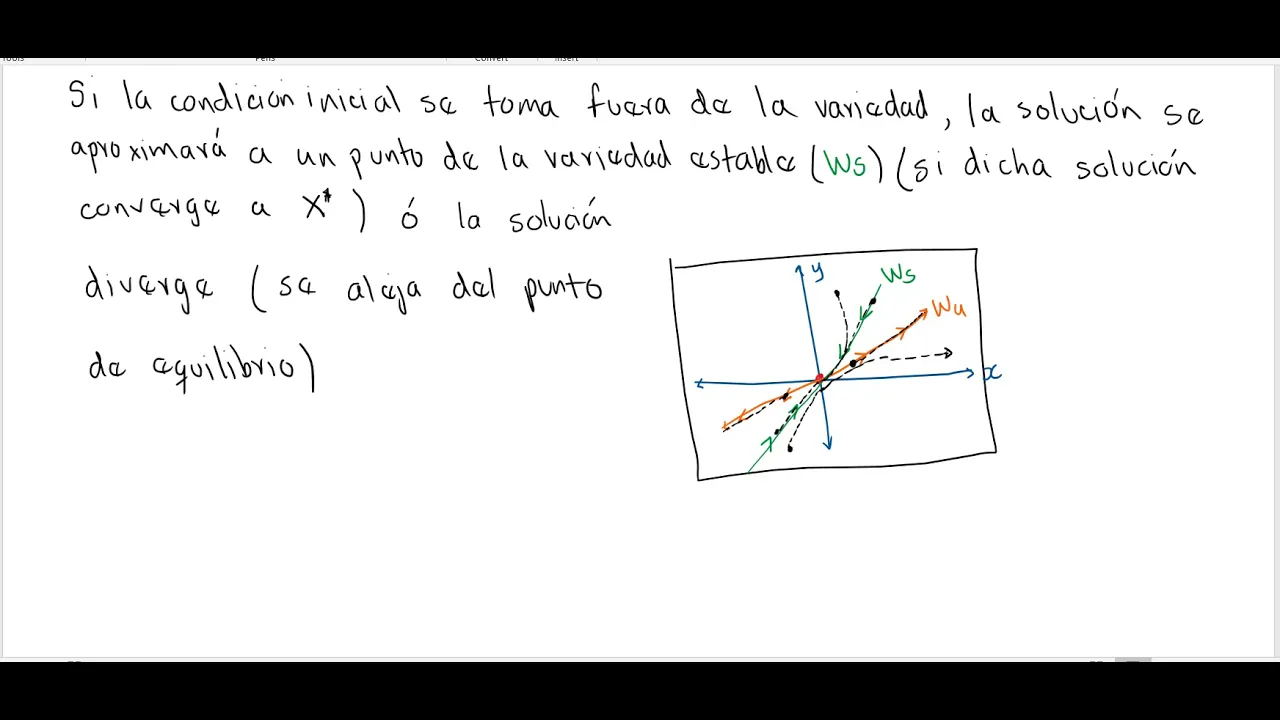 Tools Pens Convert Insert
Si la condición inicial se toma fuera de la variedad, la solución se
aproximará a un punto de la variedad estable (Ws) (si dicha solución
converge a X*) ó la solución
diverge (se aleja del punto
de equilibrio)
y
Ws
Wu
x